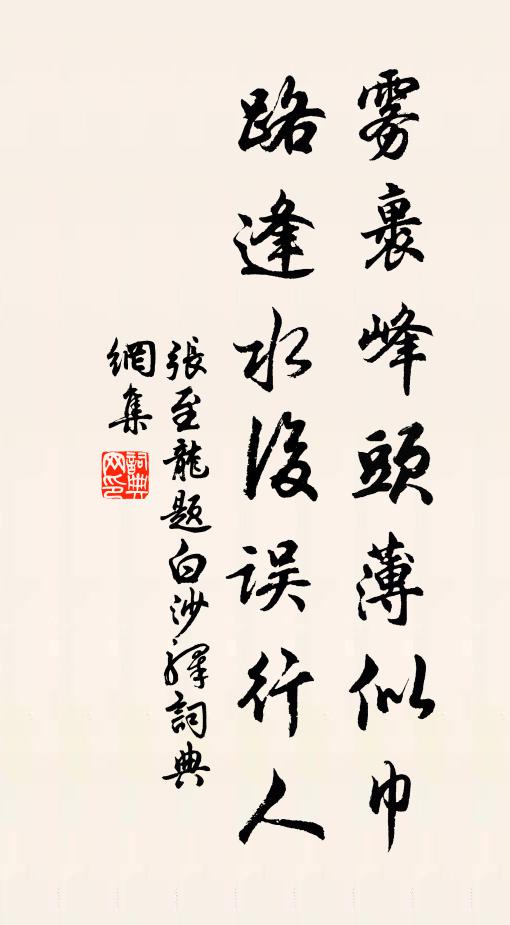 雾裹峰頭薄似巾
路逢水後误行人
張至龍题白沙驛詞典
網集
詞典网印